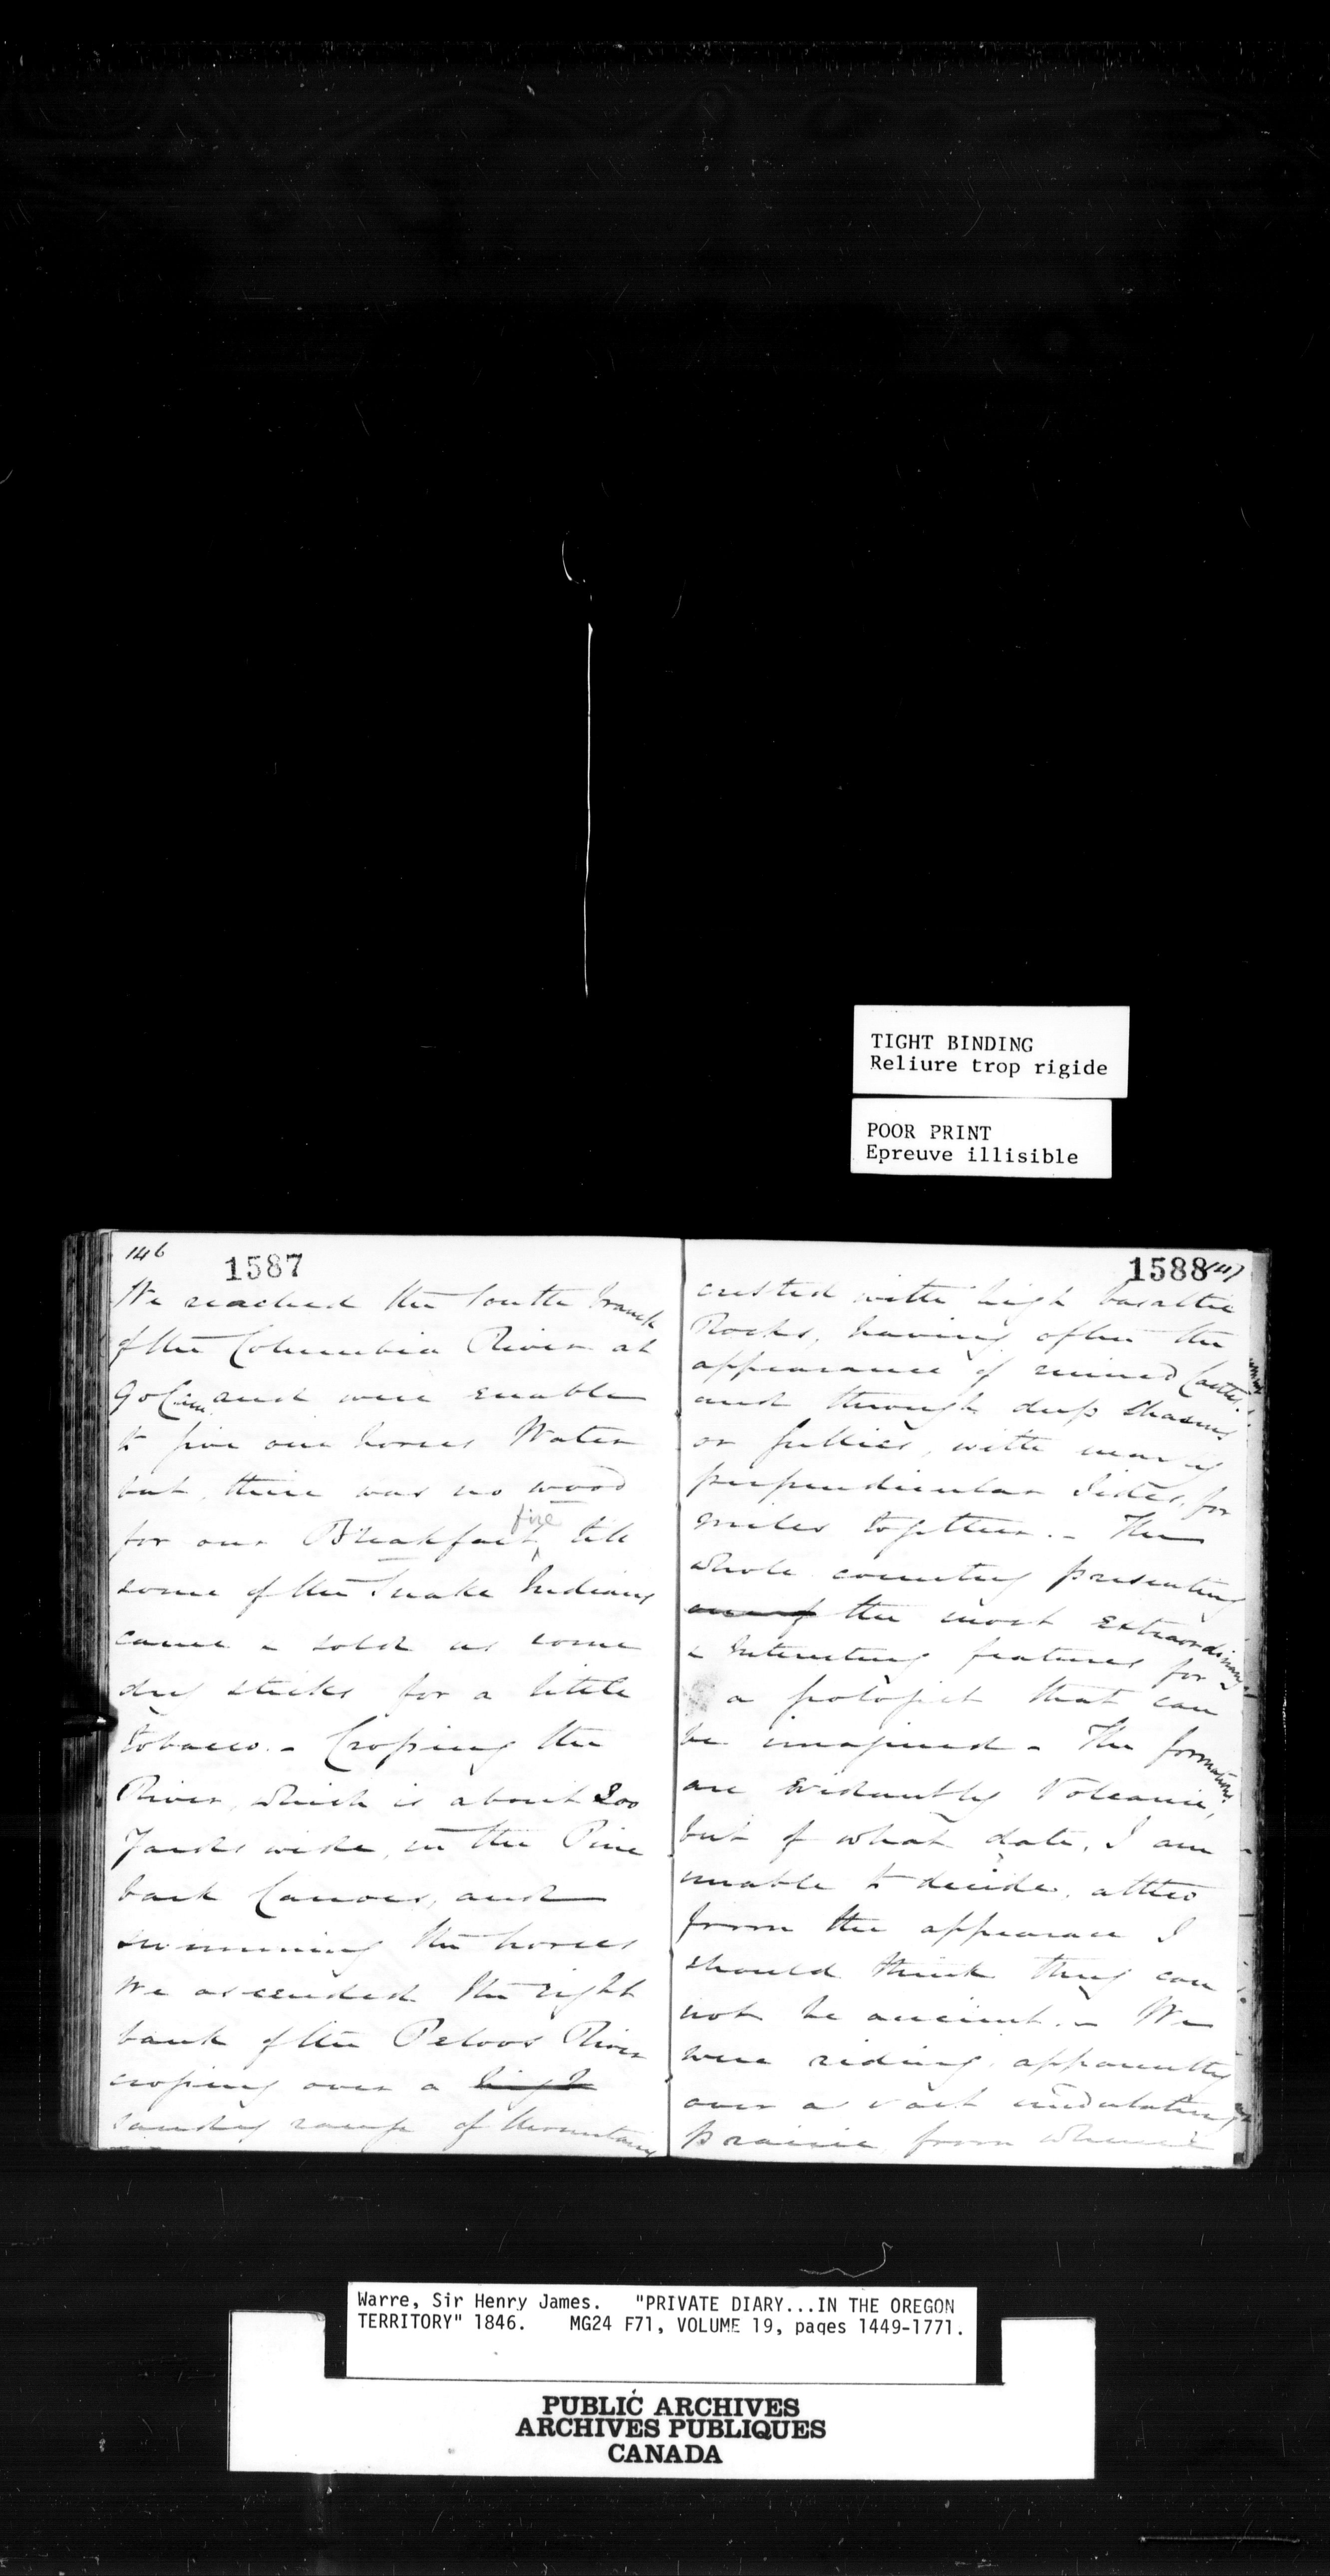 TIGHT BINDING
Reliure trop rigide
POOR PRINT
Epreuve illisible
146
1587
We reached the South Branch
of the Columbia River at
9 o'C and were enable
to give our horses Water
but there was no wood
for our Breakfast fire till
some of the Snake Indians
came & sold us some
dry sticks for a little
Tobacco. - Crossing the
River, which is about 200
Yards wide, in the Pine
bark Canoes, and
swimming the horses
We ascended the right
bank of the Peloos River
crossing over a high
sandy range of Mountains
1588 147
crested with high basaltic
Rocks, having often the
appearance of ruined Castles,
and through deep Chasms
or gullies, with nearly
perpendicular Sides, for
miles together. - The
whole country presenting
one of the most extraordinary
& Interesting features for
a geologist that can
be imagined - The formations
are evidently Volcanic,
but of what date, I am
unable to decide, altho
from the appearance I
should think they can
not be ancient. - We
were riding apparently
over a vast undulating
prairie from whence
Warre, Sir Henry James. "PRIVATE DIARY...IN THE OREGON
TERRITORY" 1846. MG24 F71, VOLUME 19, pages 1449-1771.
PUBLIC ARCHIVES
ARCHIVES PUBLIQUES
CANADA